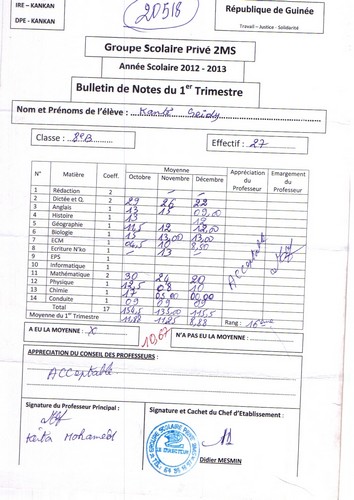 IRE – KANKAN
DPE - KANKAN
20518
République de Guinée
Travail – Justice - Solidarité
Groupe Scolaire Privé 2MS
Année Scolaire 2012 - 2013
Bulletin de Notes du 1er Trimestre
Nom et Prénoms de l'élève : Kanté
Classe : 8e B
Effectif : 27
N° Matière Coeff. Moyenne Appréciation du Professeur Emargement du Professeur
Octobre Novembre Décembre
1 Rédaction 2
2 Dictée et Q. 2 29 26 22
3 Anglais 1 13 13 09,00
4 Histoire 1
5 Géographie 1
6 Biologie 1 12 12,00
7 ECM 1 13,00 13,00
8 Ecriture N'ko 1 10 8,50
9 EPS 1 13
10 Informatique 1
11 Mathématique 2 30 24 20
12 Physique 1 08 10
13 Chimie 1 17
14 Conduite 1 09 09 09
Total 17 115,5
Moyenne du 1er Trimestre 11,25 8,88
Acceptable
Rang : 16
A EU LA MOYENNE : X
10,67
N'A PAS EU LA MOYENNE :
APPRECIATION DU CONSEIL DES PROFESSEURS :
Acceptable
Signature du Professeur Principal :
Keita Mohamed
Signature et Cachet du Chef d'Etablissement :
LE DIRECTEUR
Didier MESMIN